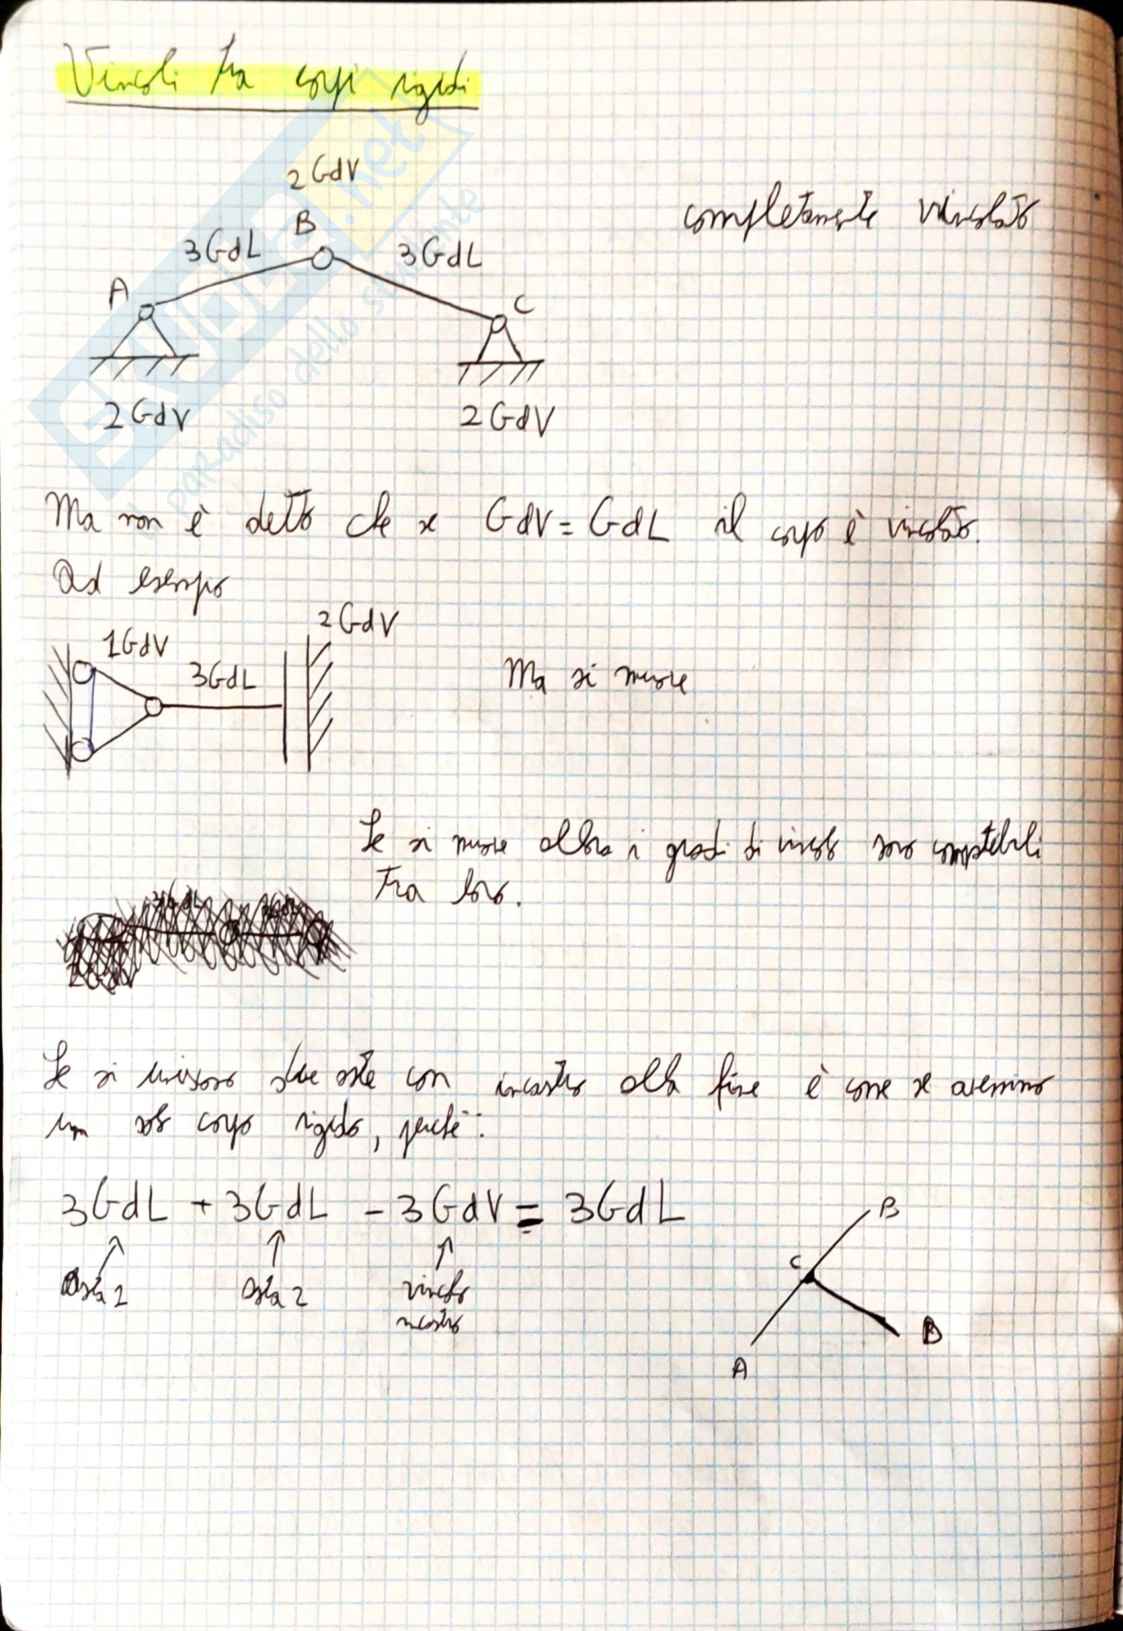 Vincoli tra corpi rigidi
2GdV
completamente vincolato
B
3GdL
3GdL
A
C
2GdV
2GdV
Ma non è detto che se GdV = GdL il corpo è vincolato.
Ad esempio
2GdV
1GdV
3GdL
Ma si muove
Se si muove allora i gradi di vincolo sono compatibili
tra loro.
Se si uniscono due aste con incastro alla fine è come se avessimo
un solo corpo rigido, perché:
3GdL + 3GdL - 3GdV = 3GdL
B
C
asta 1
asta 2
vincolo
incastro
B
A
SKUOLA.net
il paradiso dello studente